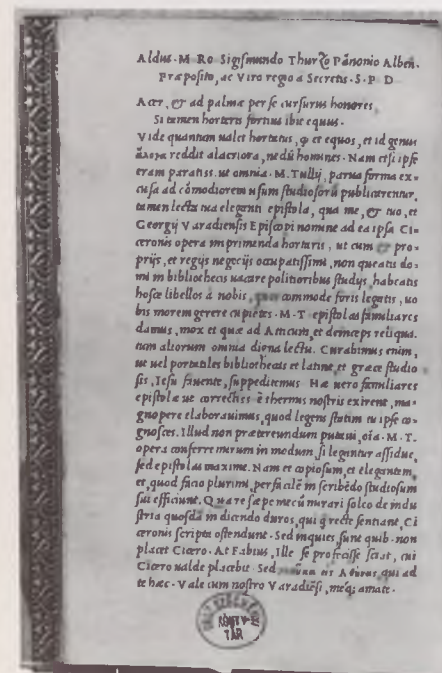 Aldus · M Ro Sigismundo Thurzo Pãnonio Alben.
Præposito, ac Viro regio a Secretis · S · P D
Acer, & ad palmæ per se cursurus honores,
Si tamen horteris fortius ibit equus ·
Vide quantum ualet hortatus, q et equos, et id genus
ἄλογα reddit alacriora, nedũ homines · Nam etsi ipse
eram paratiss. ut omnia · M. Tullij, parua forma ex=
cusa ad cõmodiorem usum studiosorũ publicarentur,
tamen lecta tua eleganti epistola, qua me, & tuo, et
Georgij Varadiensis Episcopi nomine ad ea ipsa Ci
ceronis opera imprimenda hortaris, ut cum & pro=
prijs, et regijs negocijs occupatissimi, non queatis do=
mi in bibliothecis uacare politioribus studijs, habeatis
hosce libellos à nobis, commode foris legatis, uo
bis morem gerere cupientes · M · T epistolas familiares
damus, mox et quæ ad Atticum, et deinceps reliqua.
tum aliorum omnia digna lectu. Curabimus enim,
ut uel portatiles bibliothecas et latine, et græce studio
sis, Iesu fauente, suppeditemus Has uero familiares
epistolas ut correctiss è thermis nostris exirent, ma=
gnopere elaborauimus, quod legens statim tu ipse co=
gnosces. Illud non prætereundum putaui, oĩa · M · T.
opera conferre mirum in modum, si legantur assidue,
sed epistolas maxime. Nam et copiosum, et elegantem,
et, quod facio plurimi, per facilẽ in scribẽdo studiosum
sui efficiunt. Quare sæpe mecũ mirari soleo de indu
stria quosdã in dicendo duros, qui q recte sentiant, Ci
ceronis scripta ostendunt · Sed inquies, sunt quib · non
placet Cicero · At Fabius, Ille se profecisse sciat, cui
Cicero ualde placebit · Sed qui ad
te hæc · Vale cum nostro Varadiẽsi, meq; amate ·
KÖNYV
TÁR